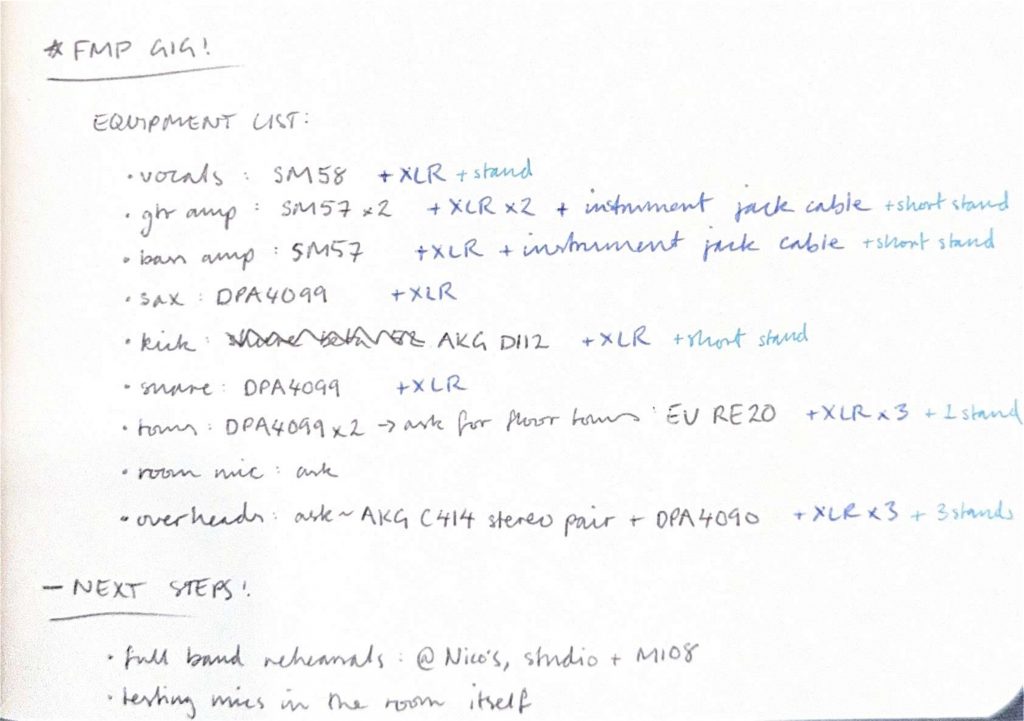 ☆ FMP GIG!
EQUIPMENT LIST:
• vocals : SM58 + XLR + stand
• gtr amp : SM57 x2 + XLR x2 + instrument jack cable + short stand
• bass amp : SM57 + XLR + instrument jack cable + short stand
• sax : DPA4099 + XLR
• kick : AKG D112 + XLR + short stand
• snare : DPA4099 + XLR
• toms : DPA4099 x2 → ask for floor toms : EV RE20 + XLR x 3 + 1 stand
• room mic : ask
• overheads : ask ~ AKG C414 stereo pair + DPA4090 + XLR x 3 + 3 stands
— NEXT STEPS!
• full band rehearsals : @ Nico's, studio + M108
• testing mics in the room itself